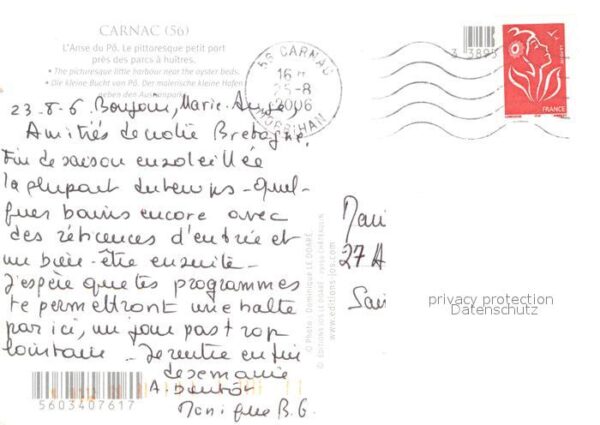 CARNAC (56)
L'Anse du Pô. Le pittoresque petit port
près des parcs à huîtres.
• The picturesque little harbour near the oyster beds.
• Die kleine Bucht von Pô. Der malerische kleine Hafen
neben den
56 CARNAC
16 H
25-8
2006
MORBIHAN
3 3895
LA POSTE
FRANCE
23.8.6 Bonjour, Marie
Amitiés de notre Bretagne,
Fin de saison ensoleillée
la plupart du temps - Quel-
ques bains encore avec
des réticences d'entrée et
un bien-être ensuite -
J'espère que tes programmes
te permettront une halte
par ici, un jour pas trop
lointain - Je rentre en fin
de semaine
A bientôt
Monique B.G.
27 A
© Photo : Dominique LE DOARÉ
www.editions-jos.com
privacy protection
Datenschutz
5603407617